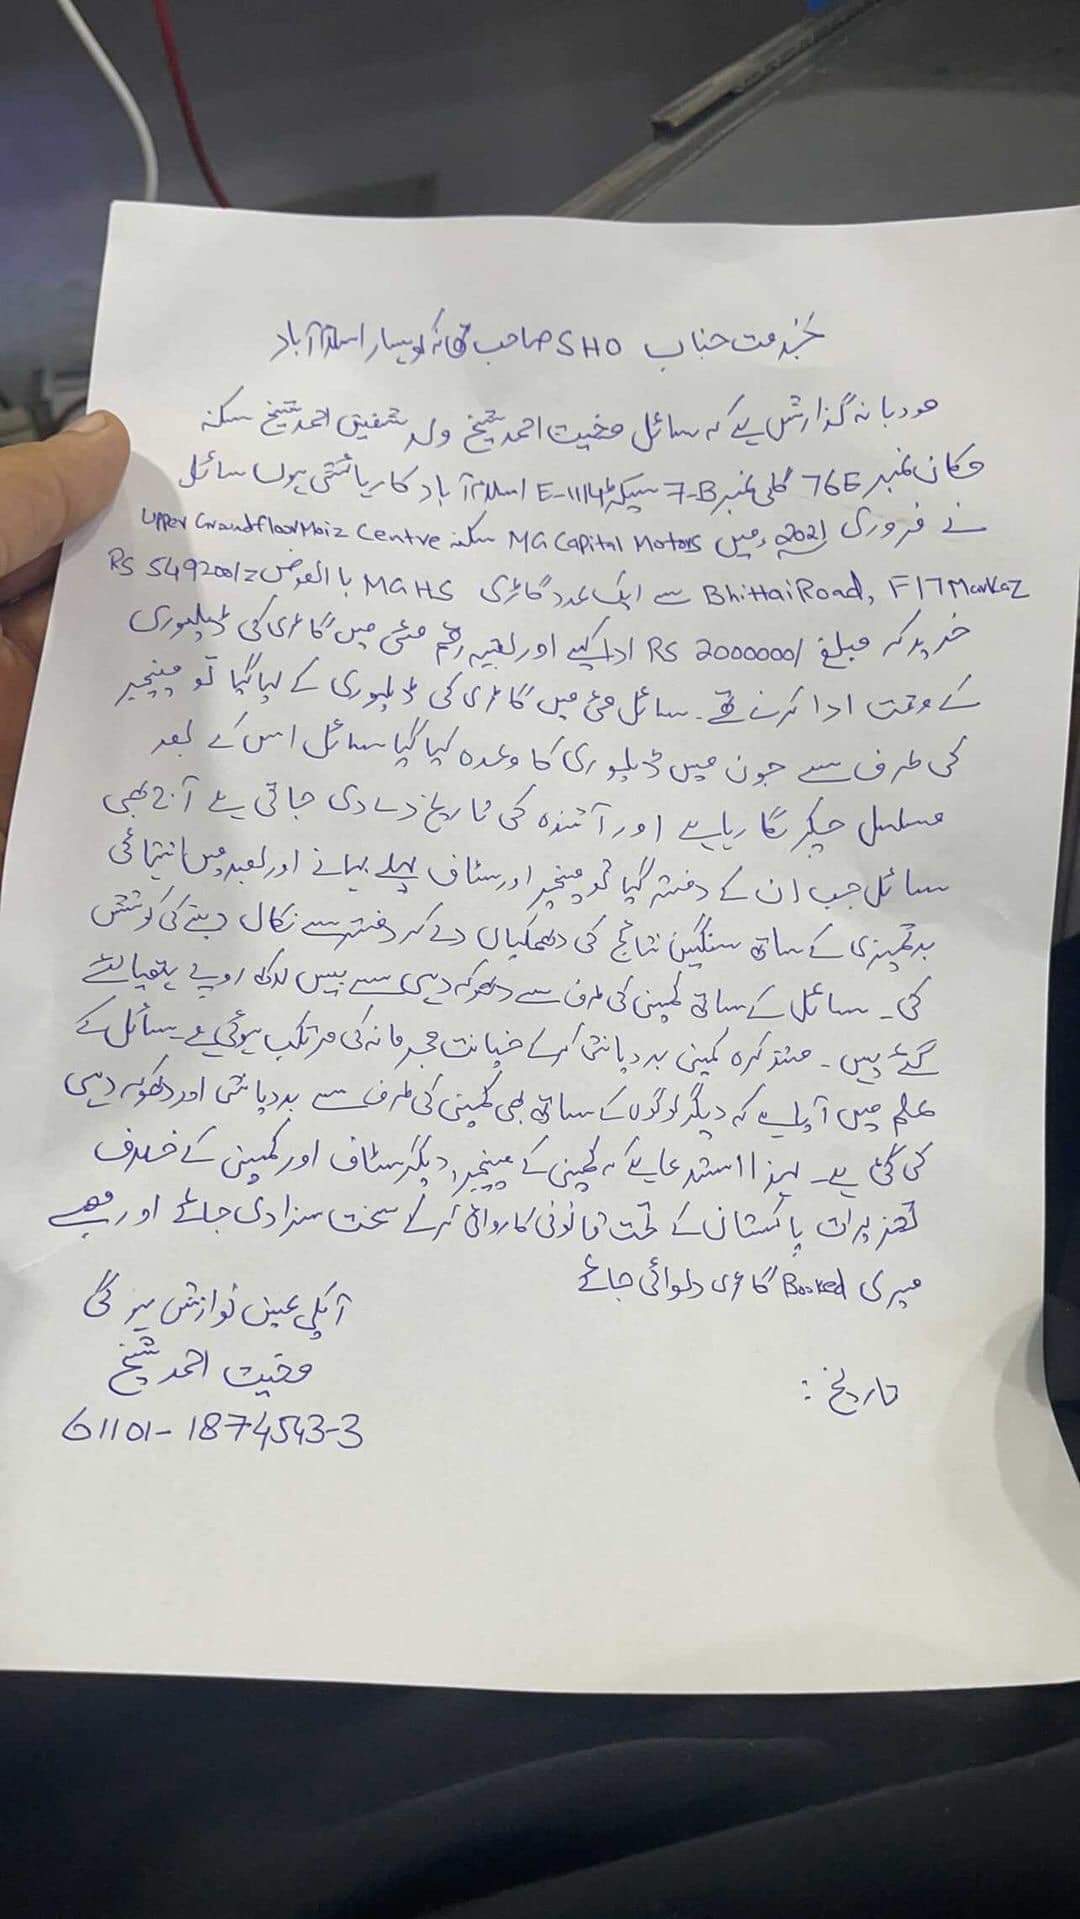 بخدمت جناب SHO صاحب تھانہ کوہسار اسلام آباد
مودبانہ گذارش ہے کہ سائل مغیث احمد شیخ ولد شفیق احمد شیخ سکنہ
مکان نمبر 76E گلی نمبر 7-B سیکٹر E-11/4 اسلام آباد کا رہائشی ہوں سائل
نے فروری 2021ء میں MG Capital Motors سکنہ Upper Grandfloor Moiz Centre
Bhittai Road, F17 Markaz سے ایک عدد گاڑی MG HS بالعوض Rs 549200/=
خرید کر مبلغ Rs 2000000/ ادا کیے اور بقیہ رقم مئی میں گاڑی کی ڈیلیوری
کے وقت ادا کرنے تھے۔ سائل مئی میں گاڑی کی ڈیلیوری کے لیا گیا تو مینیجر
کی طرف سے جون میں ڈیلیوری کا وعدہ کیا گیا سائل اس کے بعد
مسلسل چکر لگا رہا ہے اور آئندہ کی تاریخ دے دی جاتی ہے آج بھی
سائل جب ان کے دفتر گیا تو مینیجر اور سٹاف پہلے بہانے اور بعد میں انتہائی
بدتمیزی کے ساتھ سنگین نتائج کی دھمکیاں دے کر دفتر سے نکال دینے کی کوشش
کی۔ سائل کے ساتھ کمپنی کی طرف سے دھوکہ دہی سے بیس لاکھ روپے ہتھیا لئے
گئے ہیں۔ متذکرہ کمپنی بددیانتی کرکے خیانت مجرمانہ کی مرتکب ہوئی ہے۔ سائل کے
علم میں آیا ہے کہ دیگر لوگوں کے ساتھ بھی کمپنی کی طرف سے بددیانتی اور دھوکہ دہی
کی گئی ہے۔ لہذا استدعا ہے کہ کمپنی کے مینیجر، دیگر سٹاف اور کمپنی کے خلاف
تعزیرات پاکستان کے تحت قانونی کاروائی کرکے سخت سزا دی جائے اور مجھے
میری Booked گاڑی دلوائی جائے
آپکی عین نوازش ہو گی
مغیث احمد شیخ
تاریخ :
61101-1874543-3